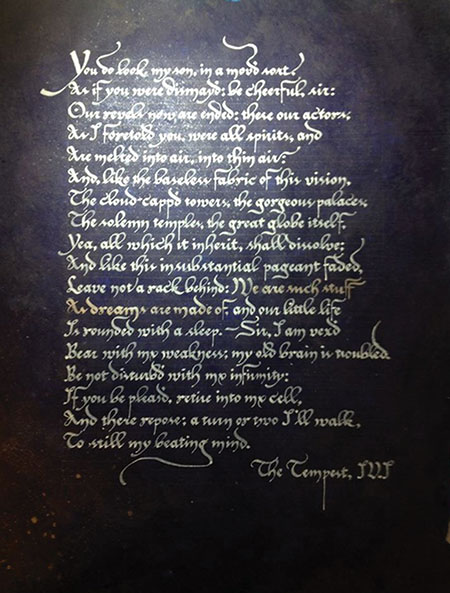 You do look, my son, in a mov'd sort,
As if you were dismay'd: be cheerful, sir:
Our revels now are ended: these our actors,
As I foretold you, were all spirits, and
Are melted into air, into thin air:
And, like the baseless fabric of this vision,
The cloud-capp'd towers, the gorgeous palaces,
The solemn temples, the great globe itself,
Yea, all which it inherit, shall dissolve;
And like this insubstantial pageant faded,
Leave not a rack behind: We are such stuff
As dreams are made of; and our little life
Is rounded with a sleep. —Sir, I am vex'd
Bear with my weakness; my old brain is troubled.
Be not disturb'd with my infirmity:
If you be pleas'd, retire into my cell,
And there repose; a turn or two I'll walk,
To still my beating mind.
The Tempest, IVI